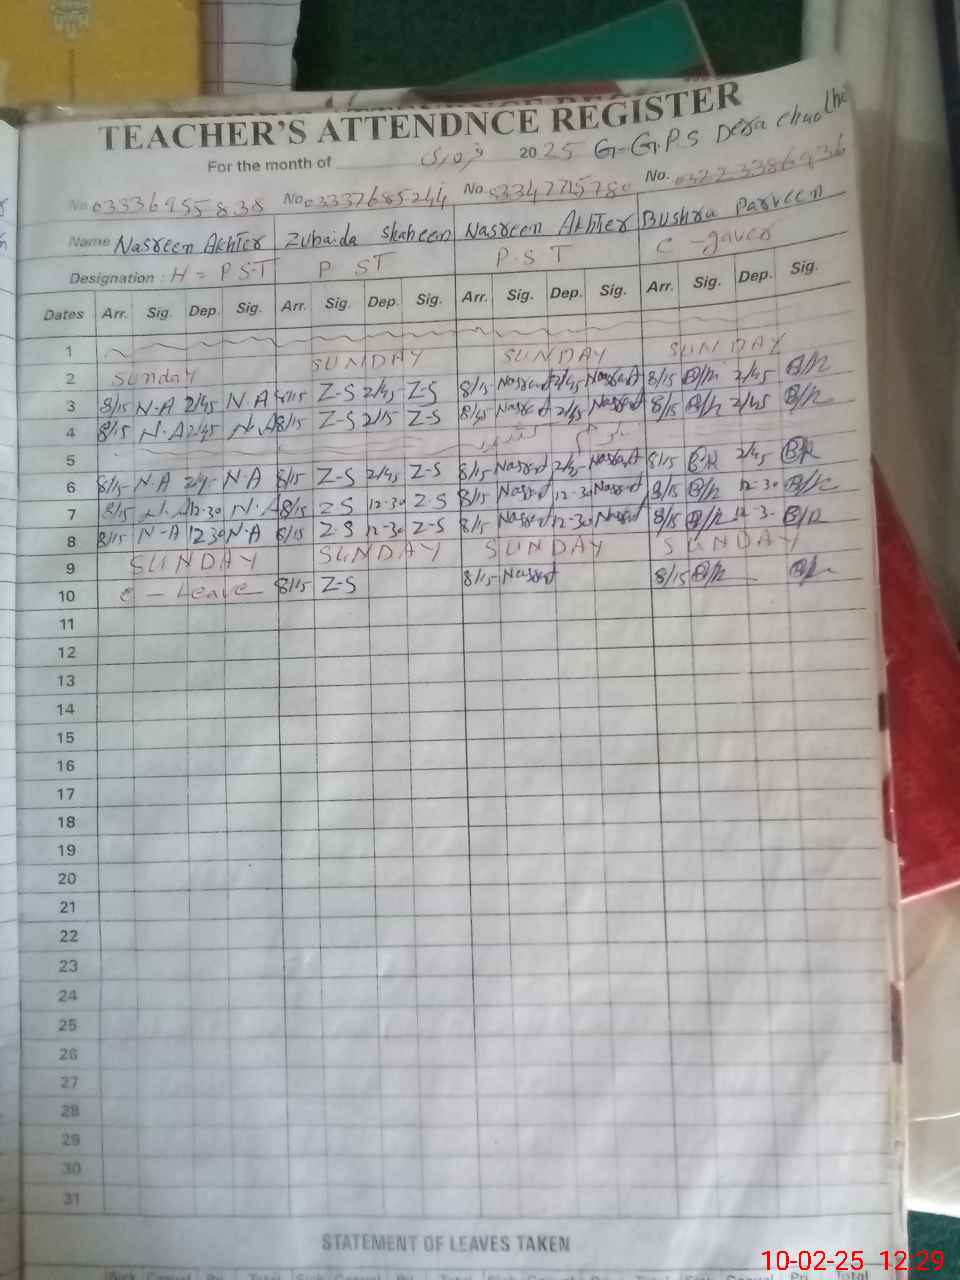 TEACHER'S ATTENDNCE REGISTER
For the month of فروری 2025 G.G.P.S Dera Chao
No. 03336955838 No. 03337685244 No. No. 03223386936
Name Nasreen Akhter Zubaida Shaheen Nasreen Akhter Bushra Parveen
Designation : H = P S.T P ST P.S.T C -
Dates Arr. Sig. Dep. Sig. Arr. Sig. Dep. Sig. Arr. Sig. Dep. Sig. Arr. Sig. Dep. Sig.
1
2 Sunday SUNDAY SUNDAY SUNDAY
3 8/15 N.A 2/45 N.A 8/15 Z-S 2/45 Z-S 8/15 2/45 8/15 B/R 2/45 B/R
4 8/15 N.A 2/45 N.A 8/15 Z-S 2/15 Z-S 8/45 2/45 8/15 B/R 2/45 B/R
5
6 8/15 N-A N-A 8/15 Z-S 2/45 Z-S 8/15 2/45 8/15 B/R 2/45 B/R
7 8/15 N.A 12-30 N.A 8/15 Z S 12-30 Z S 8/15 12-30 8/15 B/R 12-30 B/R
8 8/15 N-A 12 30 N-A 8/15 Z-S 12-30 Z-S 8/15 12-30 8/15 B/R B/R
9 SUNDAY SUNDAY SUNDAY SUNDAY
10 C - Leave 8/15 Z-S 8/15 8/15 B/R B/R
11
12
13
14
15
16
17
18
19
20
21
22
23
24
25
26
27
28
29
30
31
STATEMENT OF LEAVES TAKEN
10-02-25 12:29